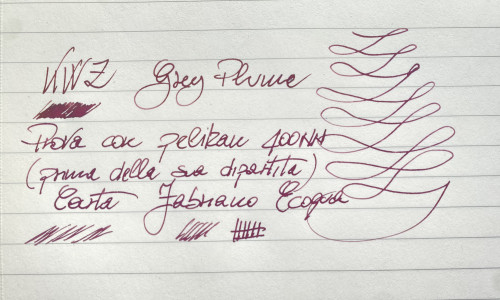 KWZ Grey Plum
Prova con pelikan 400NN
(prima della sua dipartita)
Carta Fabriano Ecoqua